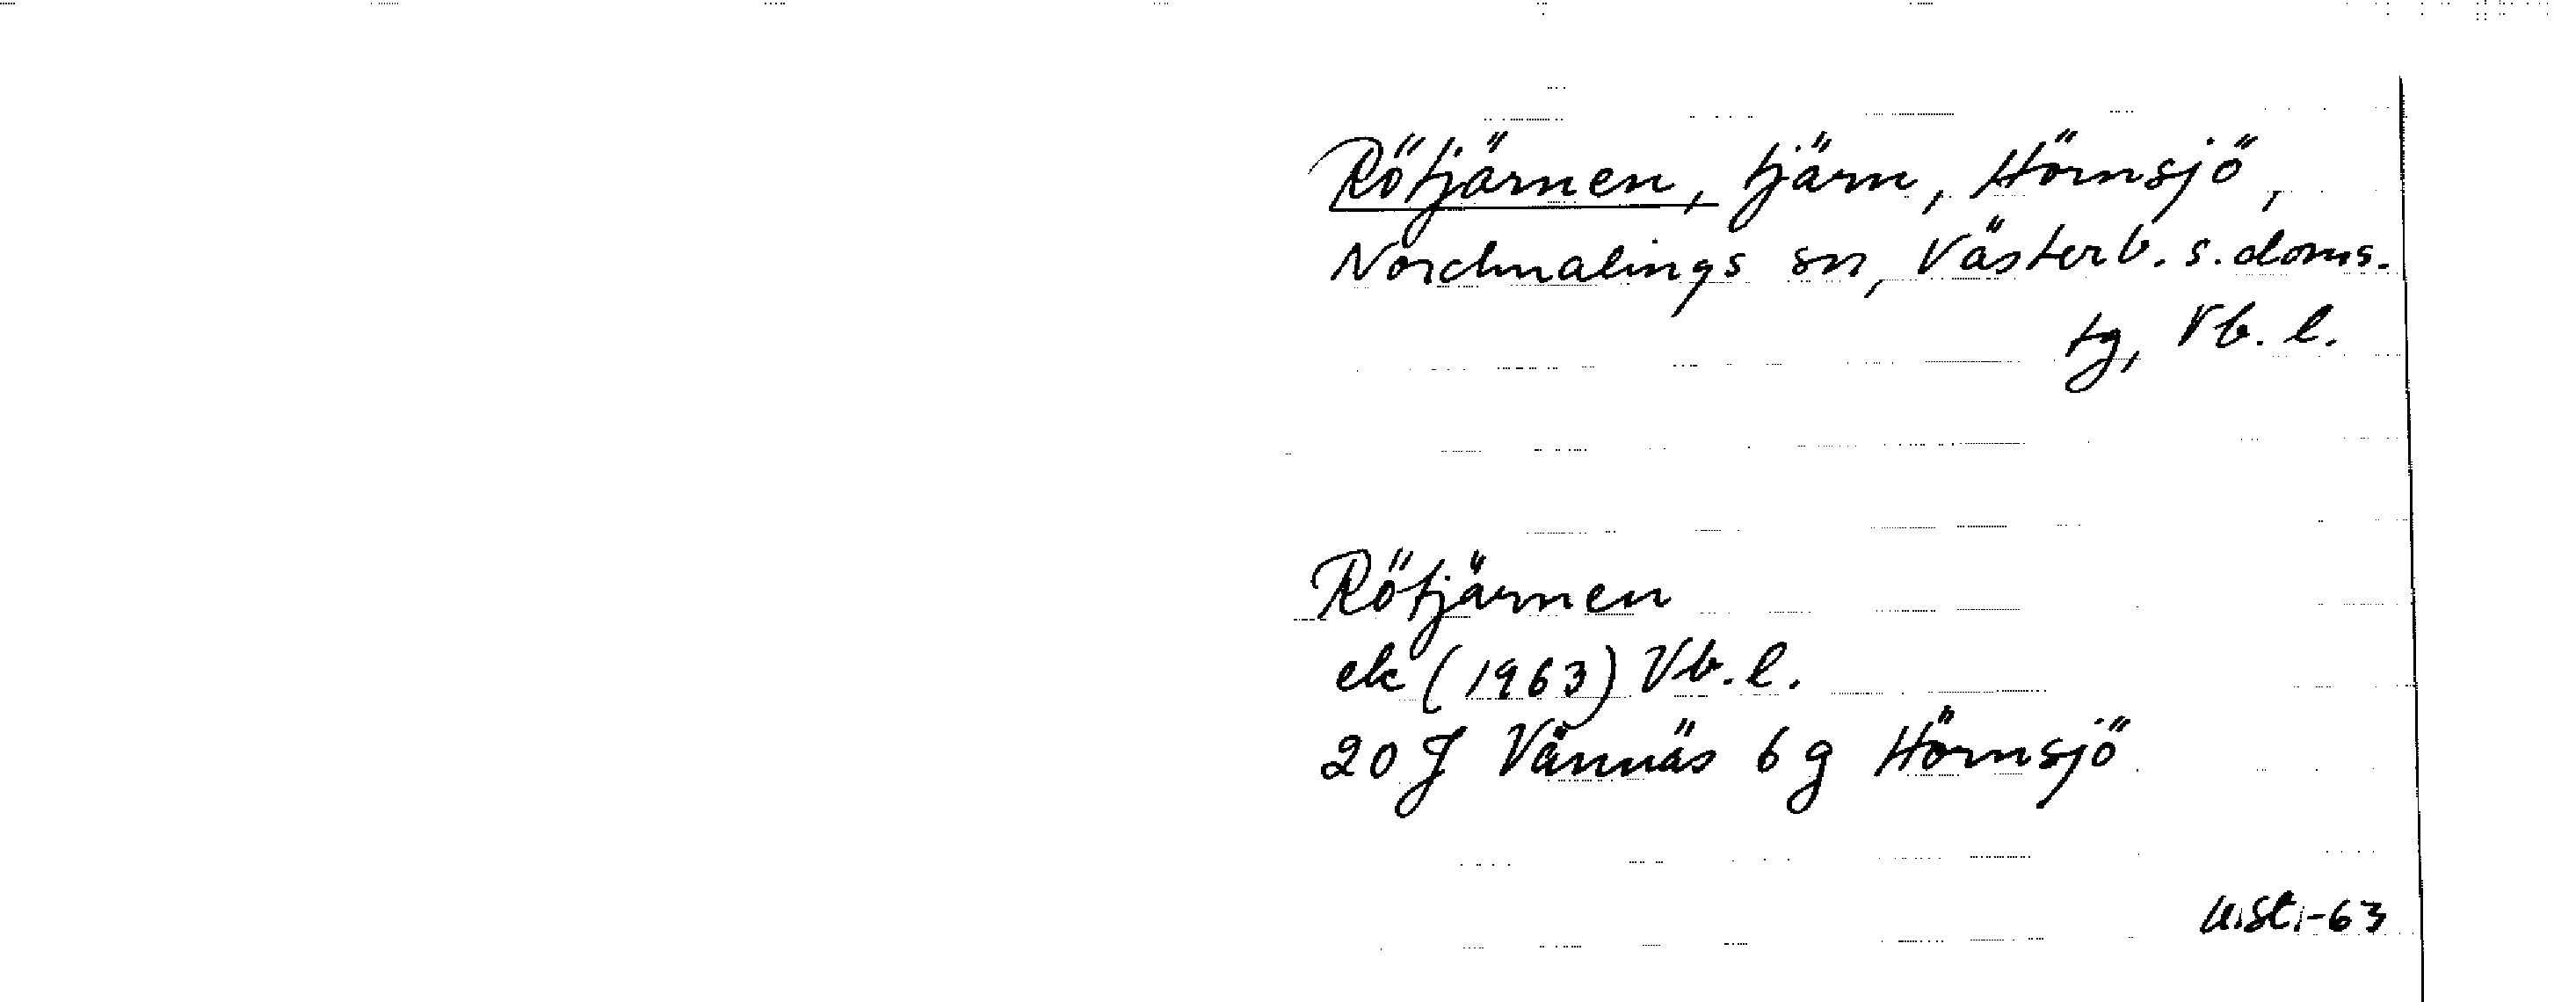 Rötjärnen, tjärn, Hörnsjö,
Nordmalings sn, Västerb. s. doms.
tg, Vb. l.
Rötjärnen
ek (1963) Vb. l.
20 J Vännäs 6 g Hörnsjö
U.St.-63